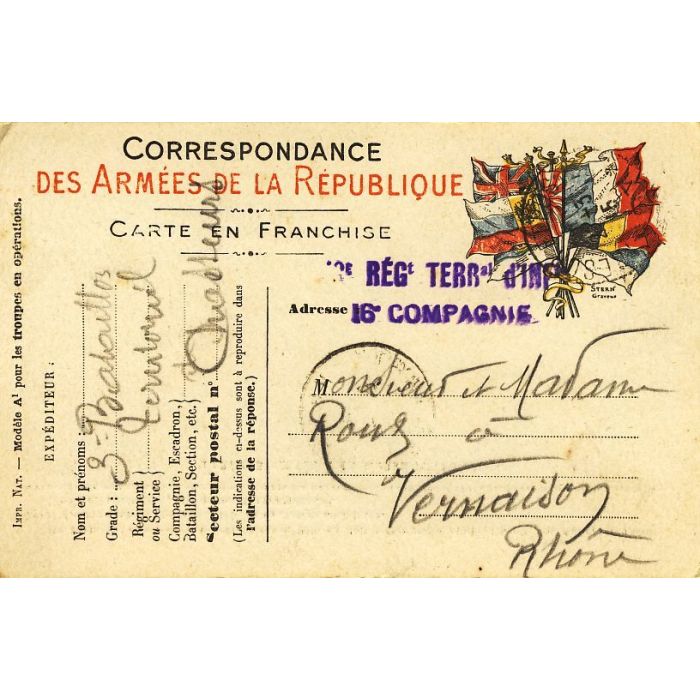 CORRESPONDANCE
DES ARMÉES DE LA RÉPUBLIQUE
CARTE EN FRANCHISE
RÉGt TERRal d'INF
16e COMPAGNIE
STERN
Graveur
Adresse
Monsieur et Madame
Roux à
à
Vernaison
Rhône
IMPR. NAT. — Modèle A1 pour les troupes en opérations.
EXPÉDITEUR :
Nom et prénoms :
Grade : 3e Bataillon
Régiment
ou Service } territorial
Compagnie, Escadron,
Bataillon, Section, etc. }
Secteur postal n°
(Les indications ci-dessus sont à reproduire dans
l'adresse de la réponse.)